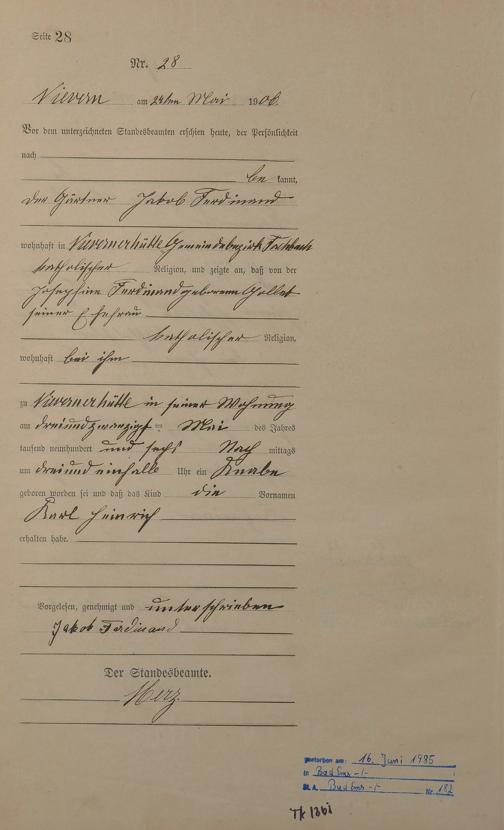 Seite 28
Nr. 28
Nievern am 24ten Mai 1906.
Vor dem unterzeichneten Standesbeamten erschien heute, der Persönlichkeit
nach
be kannt,
der Gärtner Jakob Ferdinand
wohnhaft in Nievernerhütte Gemeindebezirk Fachbach
katholischer Religion, und zeigte an, daß von der
Josephine Ferdinand geborenen Gollet
seiner Ehefrau
katholischer Religion,
wohnhaft bei ihm
zu Nievernerhütte in seiner Wohnung
am dreiundzwanzigsten Mai des Jahres
tausend neunhundert und sechs Nach mittags
um dreiundeinhalb Uhr ein Knabe
geboren worden sei und daß das Kind die Vornamen
Karl Heinrich
erhalten habe.
Vorgelesen, genehmigt und unterschrieben
Jakob Ferdinand
Der Standesbeamte.
Merz
gestorben am: 16. Juni 1985
in Bad Ems -/-
St. A. Bad Ems -/- Nr. 182